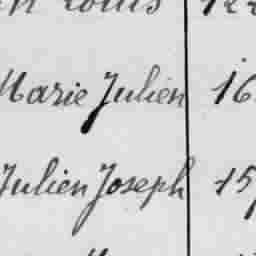 Louis
Marie Julien 16
Julien Joseph 15